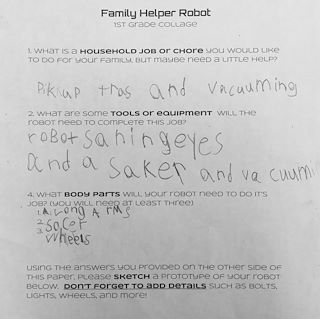 Family Helper Robot
1st Grade Collage
1. What is a household job or chore you would like
to do for your family, but maybe need a little help?
Pikup tras and vacuuming
2. What are some tools or equipment will the
robot need to complete this job?
robot sahing eyes
and a saker and vacuum
4. What body parts will your robot need to do it's
job? (You will need at least three)
1. A long Arms
2. sacer
3. wheels
Using the answers you provided on the other side
of this paper, please sketch a prototype of your robot
below. Don't forget to add details such as bolts,
lights, wheels, and more!